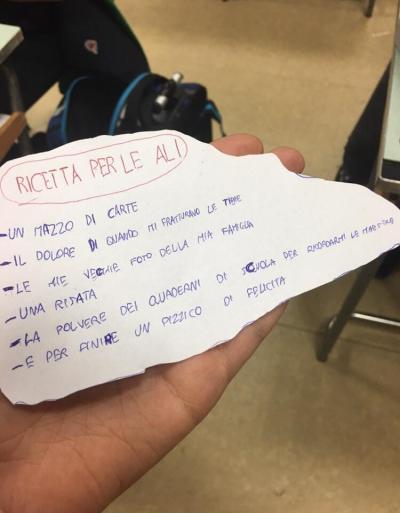 RICETTA PER LE ALI
-UN MAZZO DI CARTE
-IL DOLORE DI QUANDO MI FRATTURANO LE
-LE MIE VECCHIE FOTO DELLA MIA FAMIGLIA
-UNA RISATA
-LA POLVERE DEI QUADERNI DI SCUOLA PER RICORDARMI LE MAESTRE
-E PER FINIRE UN PIZZICO DI FELICITA